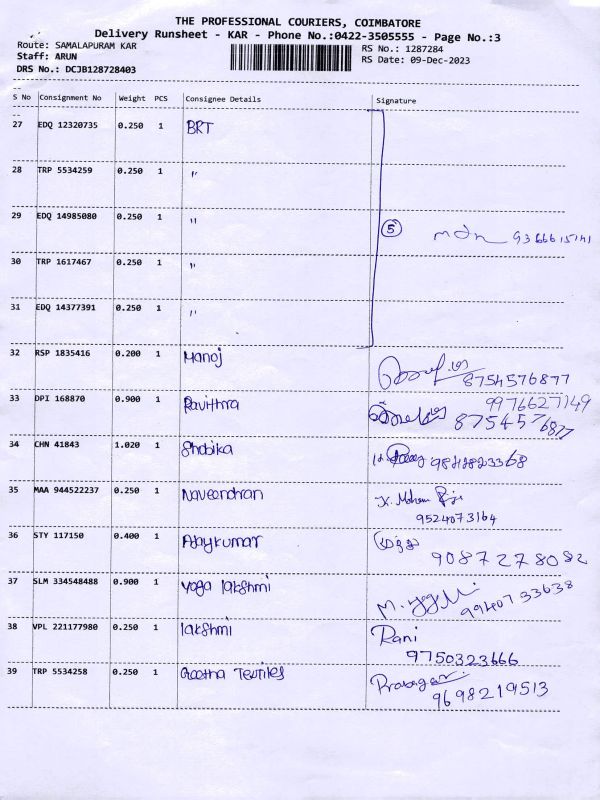 THE PROFESSIONAL COURIERS, COIMBATORE
Delivery Runsheet - KAR - Phone No.:0422-3505555 - Page No.:3
Route: SAMALAPURAM KAR
RS No.: 1287284
Staff: ARUN
RS Date: 09-Dec-2023
DRS No.: DCJB128728403
S No Consignment No Weight PCS Consignee Details Signature
27 EDQ 12320735 0.250 1 BRT
28 TRP 5534259 0.250 1 "
29 EDQ 14985080 0.250 1 " 5
30 TRP 1617467 0.250 1 "
31 EDQ 14377391 0.250 1 "
32 RSP 1835416 0.200 1 Manoj 8754576877
33 DPI 168870 0.900 1 Pavithra 9976627149
8754576877
34 CHN 41843 1.020 1 Shobika
35 MAA 944522237 0.250 1 Naveendran K. Mohan
9524073164
36 STY 117150 0.400 1 Ajaykumar முத்து
9087278082
37 SLM 334548488 0.900 1 yoga lakshmi 9940733638
38 VPL 221177980 0.250 1 lakshmi Rani
9750323666
39 TRP 5534258 0.250 1 Geetha Textiles
9698219513